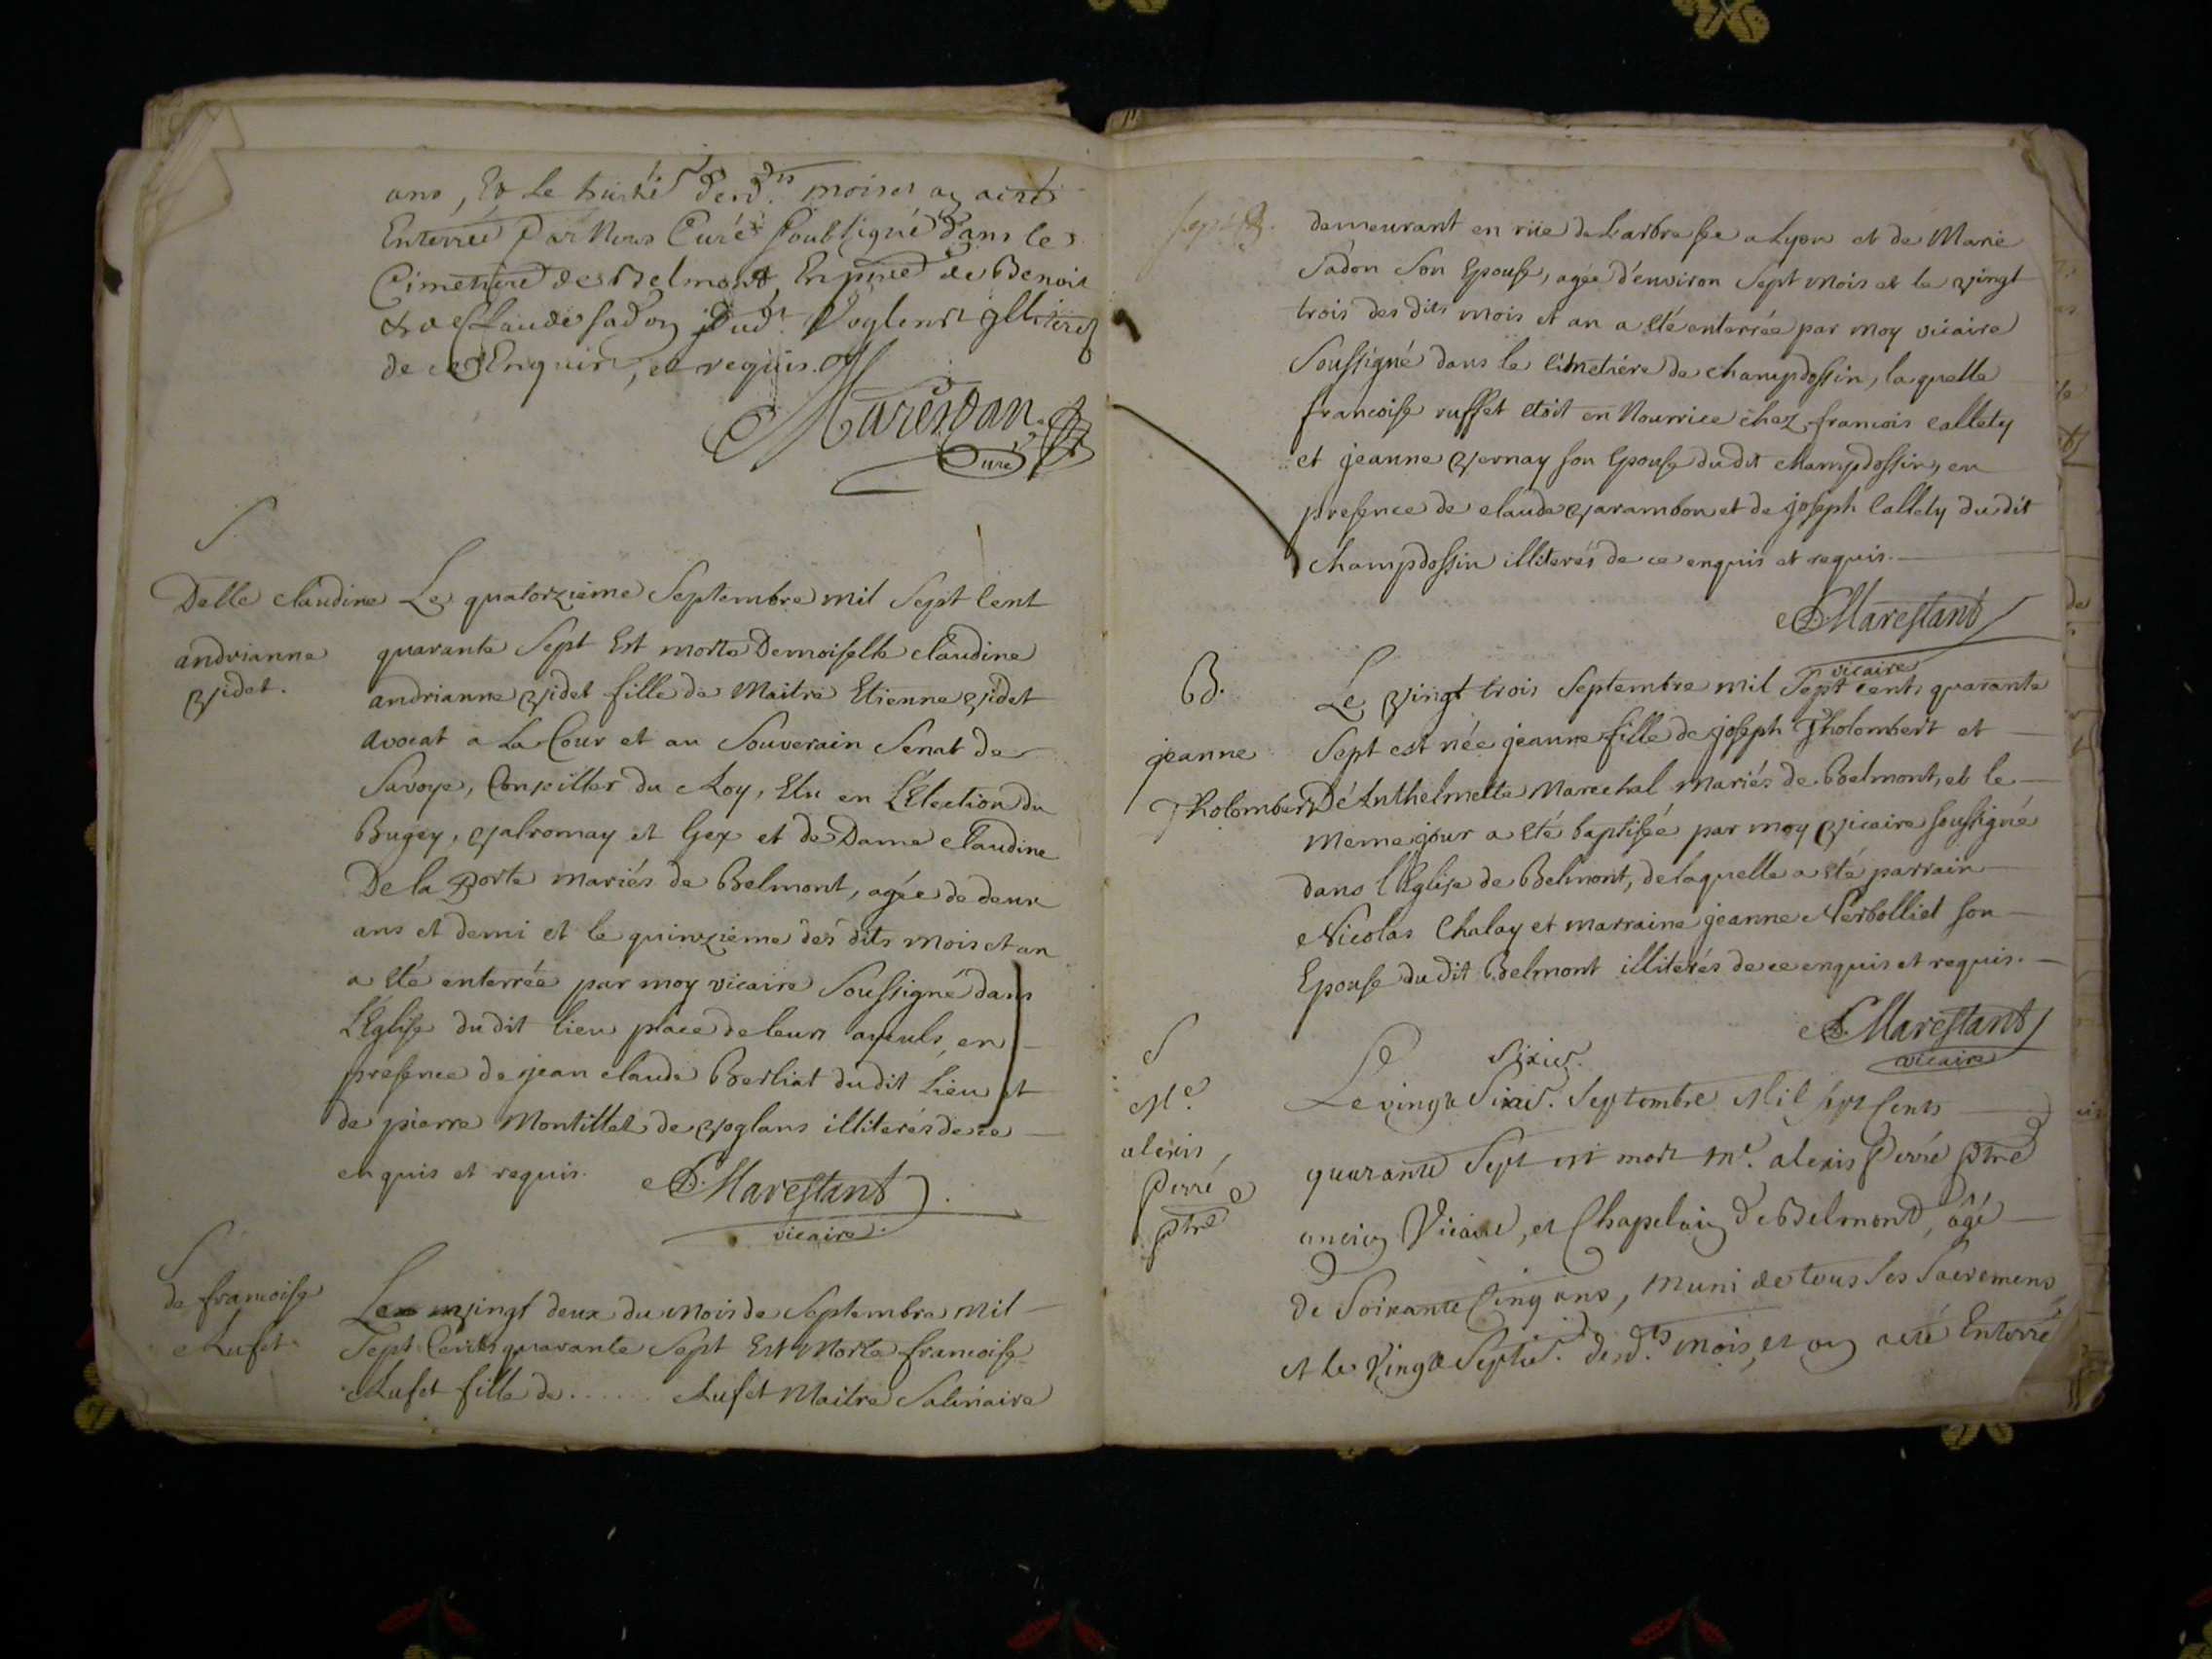 ans, Et le huitié desd.ts mois et an a été
Enterrée Par Nous Curé Soubsigné dans le
Cimetiere de Belmont, En pnce de Benoit
& de Claude Sadon dud.t Voglent illiterés
de ce Enquis, et requis.
Marestan
Curé
S.
Delle claudine
andrianne
Videt.
Le quatorzieme Septembre mil Sept Cent
quarante Sept Est morte Demoiselle claudine
andrianne Videt fille de Maitre Etienne Videt
Avocat a la Cour et au Souverain Senat de
Savoye, Conseiller du Roy, Elu en L'Election du
Bugey, Valromay et Gex et de Dame Claudine
De la Porte mariés de Belmont, agée de deux
ans et demi et le quinzieme des dits mois et an
a eté enterrée par moy vicaire Soussigné dans
L'Eglise du dit lieu place de leurs ayeuls, en
presence de jean claude Berliat du dit Lieu et
de pierre Montillet de Voglans illiterés de ce
enquis et requis. D. Marestant
vicaire
S
de francoise
Rufet
Le vingt deux du mois de Septembre mil
Sept Cents quarante Sept Est Morte francoise
Rufet fille de ...... Rufet Maitre Satinaire
demeurant en rüe de L'arbre sec a Lyon et de Marie
Sadon Son Epouse, agée d'environ Sept mois et le vingt
trois des dits mois et an a eté enterrée par moy vicaire
Soussigné dans le cimetiére de champdossin, laquelle
francoise ruffet etoit en Nourrice chez francois callety
et jeanne Vernay son Epouse du dit champdossin, en
presence de claude Varambon et de joseph Callety du dit
champdossin illiterés de ce enquis et requis.
D. Marestant
vicaire
B.
jeanne
Tholombert
Le Vingt trois Septembre mil Sept cents quarante
Sept est née jeanne fille de joseph Tholombert et
De Anthelmette Marechal mariés de Belmont, et le
meme jour a eté baptisée par moy Vicaire soussigné
dans l'Eglise de Belmont, de laquelle a eté parrain
Nicolas Chalay et marraine jeanne Nerbolliet son
Epouse du dit Belmont illiterés de ce enquis et requis.
D. Marestant
vicaire
S
Me.
alexis
Perré
ptre
Sixie.
Le vingt Sixie. Septembre Mil sept Cents
quarante Sept est mort Mr. alexis Perré ptre
ancien Vicaire, et Chapelain de Belmont, âgé
de Soixante Cinq ans, muni de tous les Sacremens
et le Vingt Septie. desd.ts mois, et an a eté Enterré